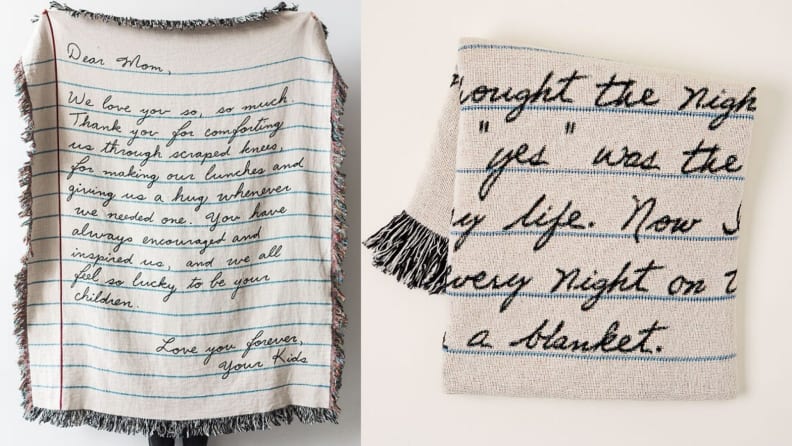 Dear Mom,
We love you so, so much.
Thank you for comforting
us through scraped knees,
for making our lunches and
giving us a hug whenever
we needed one. You have
always encouraged and
inspired us, and we all
feel so lucky to be your
children.
Love you forever,
Your Kids
ought the nigh
"yes" was the
y life. Now
very night on
a blanket.